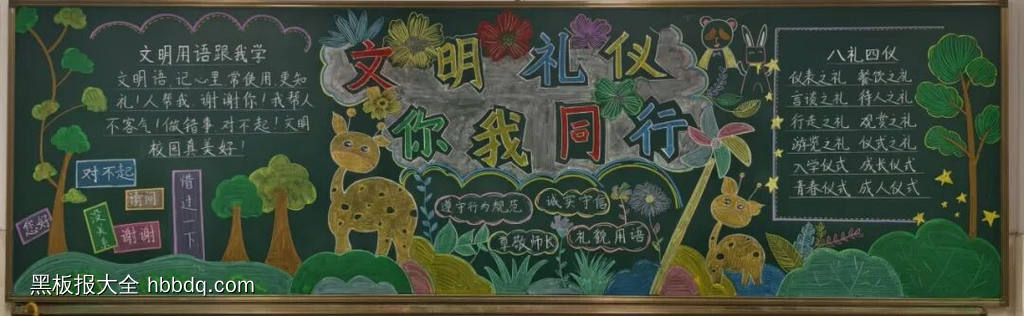 文明礼仪
你我同行
文明用语跟我学
文明语 记心里 常使用 更知
礼!人帮我 谢谢你!我帮人
不客气!做错事 对不起!文明
校园真美好!
对不起
请问
借过一下
您好
没关系
谢谢
遵守行为规范
诚实守信
尊敬师长
礼貌用语
八礼四仪
仪表之礼 餐饮之礼
言谈之礼 待人之礼
行走之礼 观赏之礼
游览之礼 仪式之礼
入学仪式 成长仪式
青春仪式 成人仪式
黑板报大全 hbbdq.com